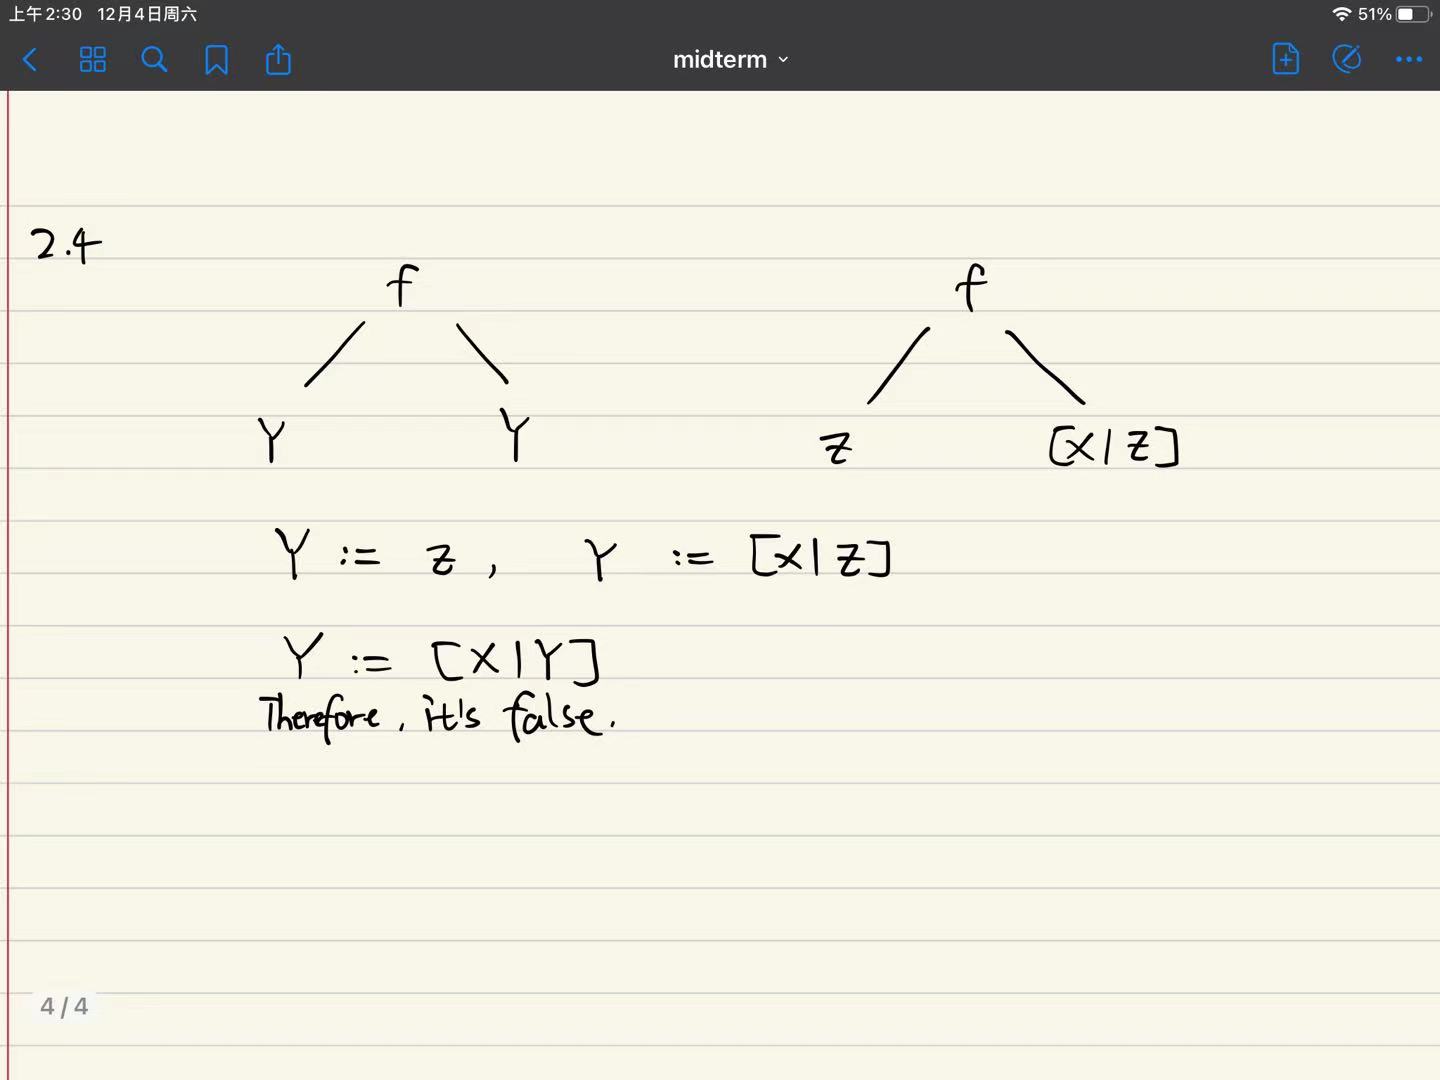 上午2:30 12月4日周六 51%
midterm
2.4
f f
Y Y z [X|Z]
Y := z, Y := [X|Z]
Y := [X|Y]
Therefore, it's false.
4/4